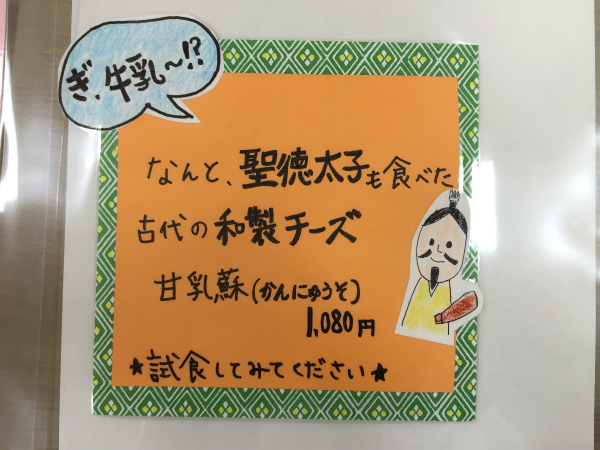 ぎ、牛乳〜!?
なんと、聖徳太子も食べた
古代の和製チーズ
甘乳蘇(かんにゅうそ)
1,080円
★試食してみてください★